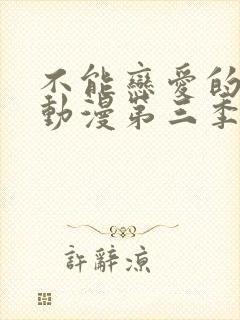 不能戀愛的
動漫第三季
許辭涼